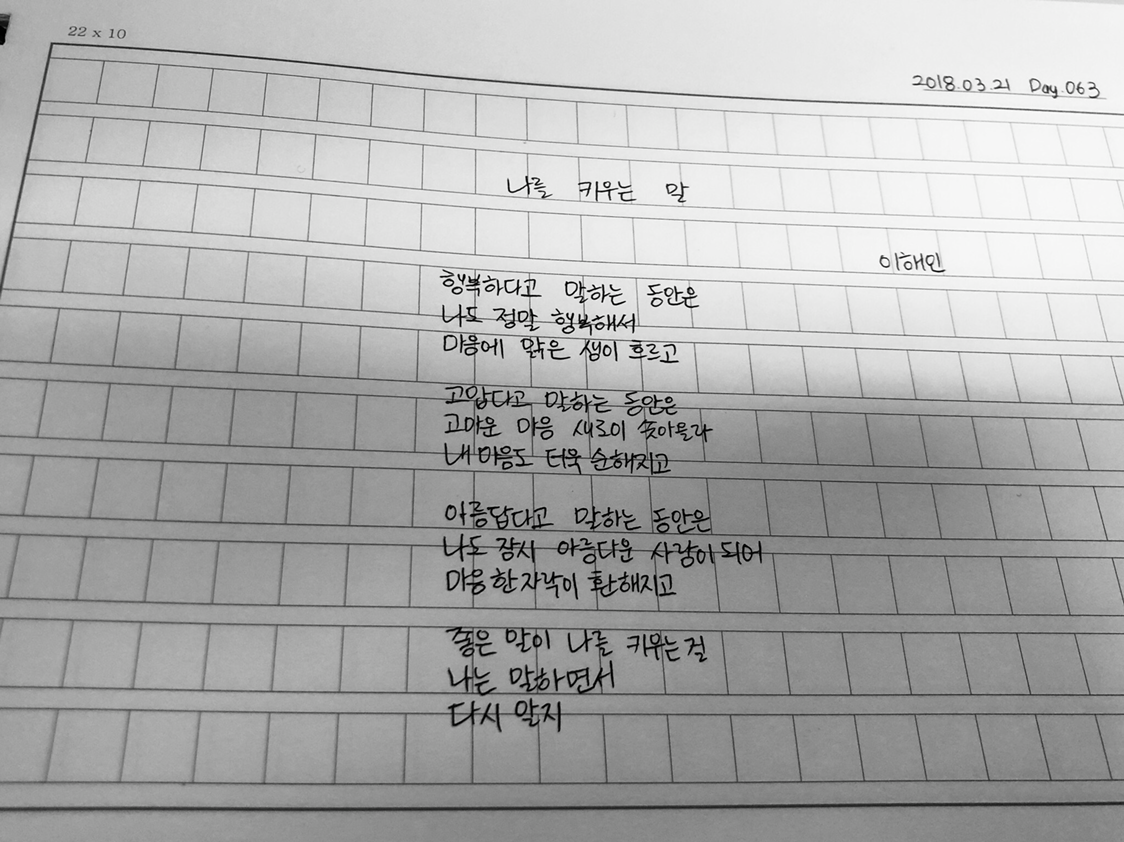 22 x 10
2018.03.21 Day.063
나를 키우는 말
이해인
행복하다고 말하는 동안은
나도 정말 행복해서
마음에 맑은 샘이 흐르고
고맙다고 말하는 동안은
고마운 마음 새로이 솟아올라
내 마음도 더욱 순해지고
아름답다고 말하는 동안은
나도 잠시 아름다운 사람이 되어
마음 한 자락이 환해지고
좋은 말이 나를 키우는 걸
나는 말하면서
다시 알지